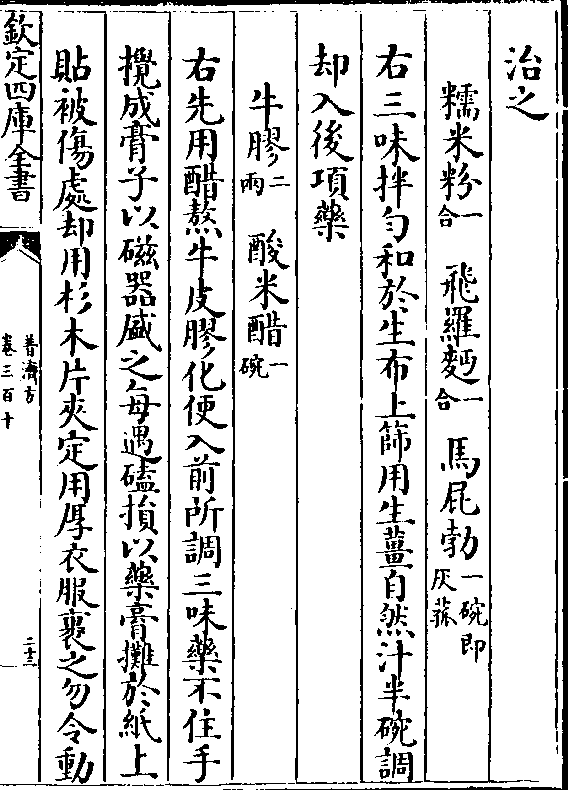 治之
糯米粉一合 飛羅麫一合 馬屁勃一碗即灰菰
右三味拌勻和於生布上篩用生薑自然汁半碗調
却入後項藥
牛膠二兩 酸米醋一碗
右先用醋熬牛皮膠化便入前所調三味藥不住手
攪成膏子以磁器盛之每遇磕損以藥膏攤於紙上
貼被傷處却用杉木片夾定用厚衣服裹之勿令動
欽定四庫全書
普濟方
卷三百十
二十三